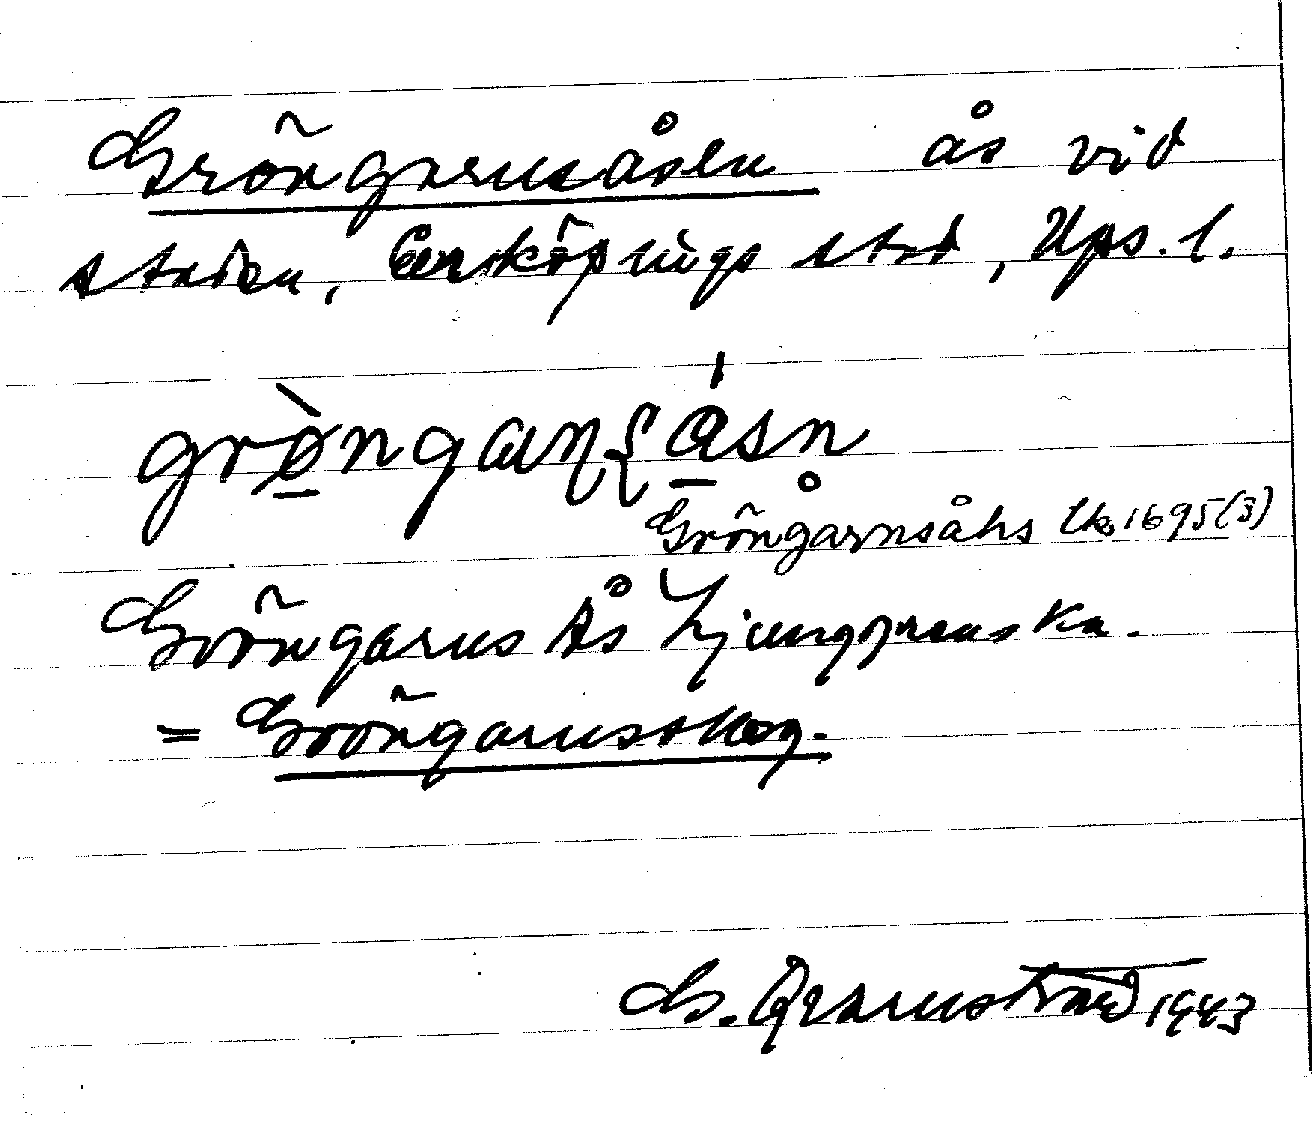 Gröngarnsåsen ås vid
staden, Enköpings stad, Ups. l.
grö̀ngarnsåsn
Gröngårnsåhs Lk 1695 (3)
Gröngarns Ås Ljunggrenska.
= Gröngarnsskog.
G. Qvarnstrand 1943